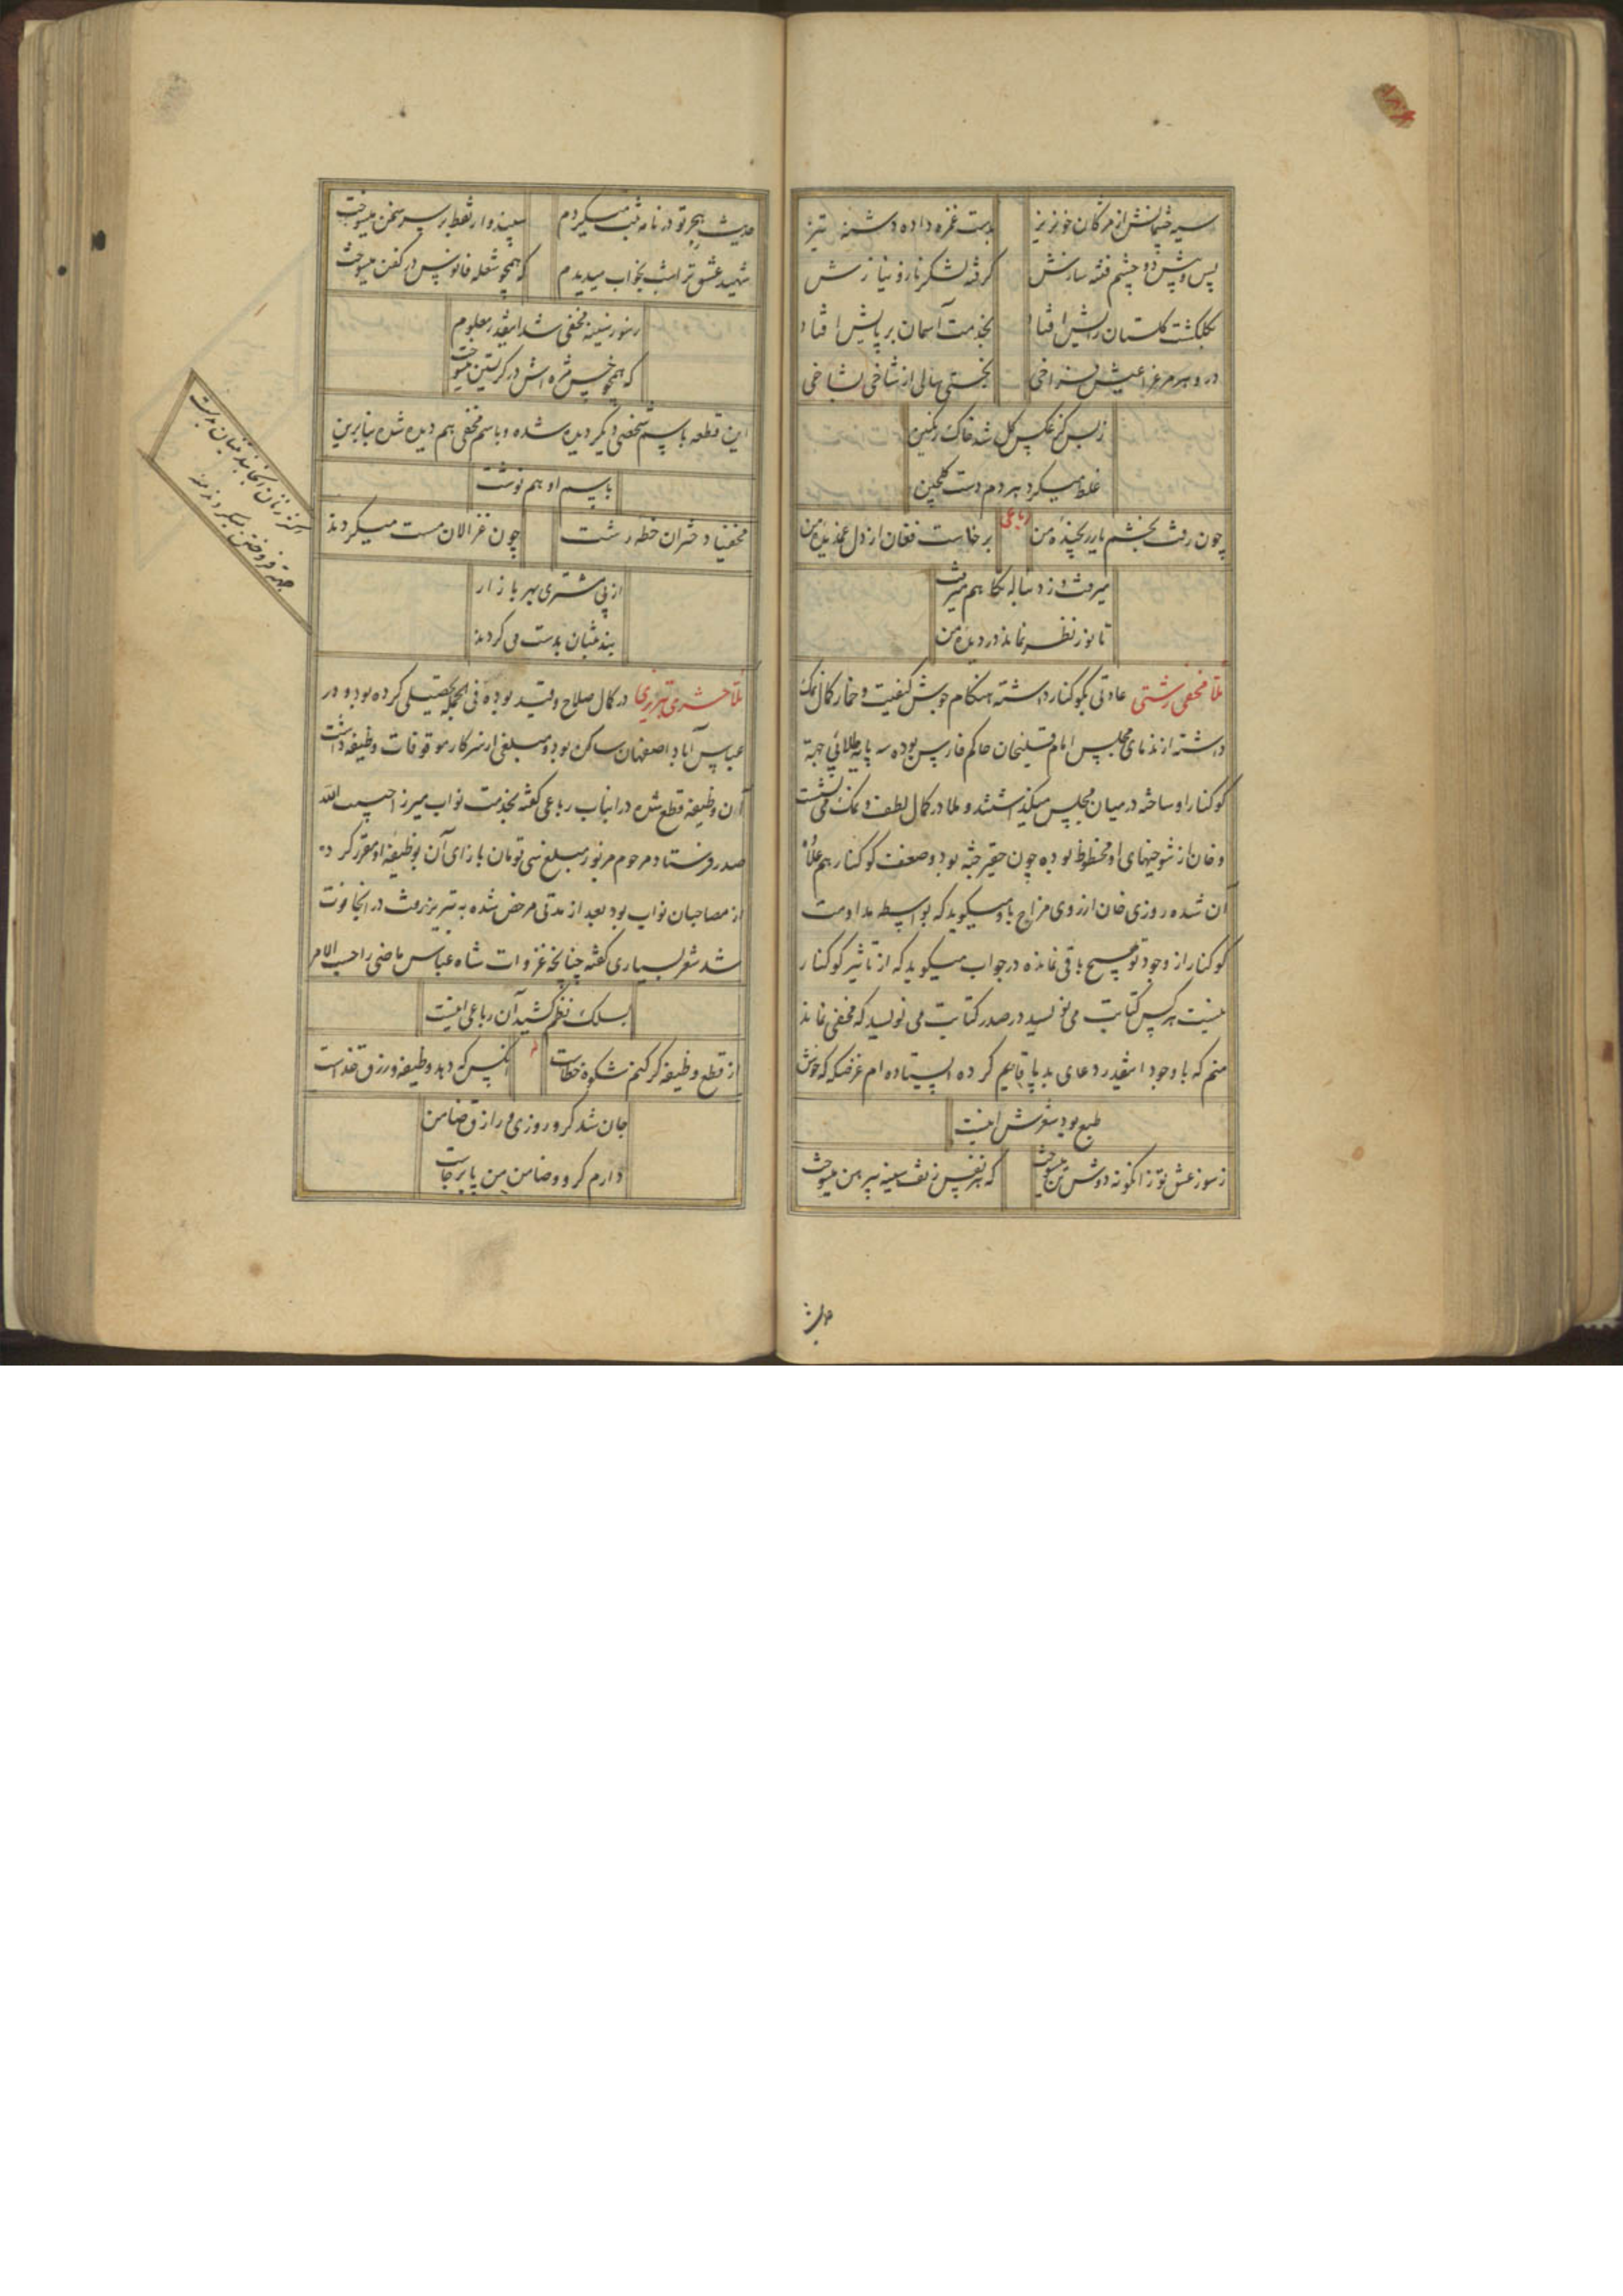 سیه چشمانش از مژگان خونریز بدست غمزه داده دشنه تیز
پس و پیش دو چشم فتنه سازش گرفته لشکر ناز و نیازش
بگلگشت گلستان رایش افتاد بخدمت آسمان بر پایش افتاد
در و هر مرغ را عیش فراخی بجستی حالی از شاخی بشاخی
ز بس کز عکس گل شد خاک رنگین
غلط میکرد هر دم دست گلچین
رباعی
چون رفت بخشم یار رنجیده من برخاست فغان از دل غمدیده من
میرفت و ز دنباله نگاهم میرفت
تا نور نظر نماند در دیده من
ملا مخفی رشتی عادتی بکوکنار داشته هنگام جوش کیفیت و خمار کمال نمک
داشته از ندمای مجلس امام قلیخان حاکم فارس بوده سه پایه طلایی جهة
کوکنار او ساخته در میان مجلس میگذاشتند و ملا در کمال لطف و نمک می نشست
و خان از شوخیهای او محظوظ بوده چون حقیر جثه بود و ضعف کوکنار هم علاوه
آن شده روزی خان از روی مزاح باو میگوید که بواسطه مداومت
کوکنار از وجود تو هیچ باقی نمانده در جواب میگوید که از تاثیر کوکنار
نیست هر کس کتابت می نویسد در صدر کتابت می نویسد که مخفی نماند
منم که با وجود اینقدر دعای بد پا قایم کرده ایستاده ام غرضکه خوش
طبع بود شعرش اینست
ز سوز عشق تو زانگونه دوش تن میسوخت که هر نفس ز تف سینه پیرهن میسوخت
حدیث
حدیث هجر تو در نامه ثبت میکردم سپند وار نقط بر سر سخن میسوخت
شهید عشق ترا شب بخواب میدیدم که همچو شعله فانوس در کفن میسوخت
ز سوز سینه مخفی شد اینقدر معلوم
که همچو خس مژه اش در گریستن میسوخت
این قطعه باسم شخصی دیگر دیده شده و باسم مخفی هم دیده شده بنابرین
باسم او هم نوشت
مخفیا دختران خطه رشت چون غزالان مست میگردند
از پی مشتری بهر بازار
بند تنبان بدست می گردند
اکثر زنان آنجا بند تنبان بدست
جهة فروختن میگردند منه
ملا حشری تبریزی در کمال صلاح و قید بوده فی الجمله تحصیلی کرده بود و در
عباس آباد اصفهان ساکن بود و مبلغی از سرکار موقوفات وظیفه داشت
آن وظیفه قطع شده در اینباب رباعی گفته بخدمت نواب میرزا حبیب الله
صدر فرستاد مرحوم مزبور مبلغ سی تومان بازای آن بوظیفه او مقرر کرد
از مصاحبان نواب بود بعد از مدتی مرخص شده به تبریز رفت در آنجا فوت
شد شعر بسیاری گفته چنانچه غزوات شاه عباس ماضی را حسب الامر
بسلک نظم کشید آن رباعی اینست
از قطع وظیفه گر کنم شکوه خطاست آنکس که دهد وظیفه و رزق خداست
جان شد گرو روزی و رازق ضامن
دارم گرو و ضامن من پا برجاست